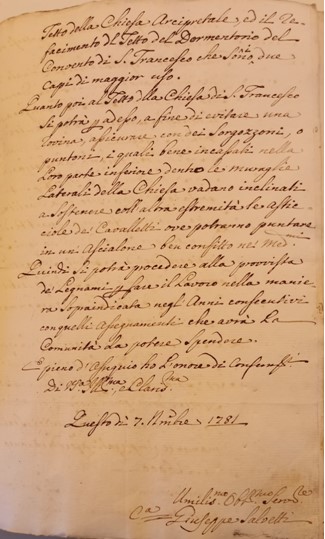 Tetto della Chiesa Arcipretale, ed il Re-
facimento dl Tetto del Dormentorio del
Convento di S. Francesco che sono due
Capi di maggior uso.
Quanto poi al Tetto della Chiesa di S. Francesco
si potrà p adesso, a fine di evitare una
rovina, assicurare con dei Sorgozzoni, o
puntoni, i quali bene incassati nella
loro parte inferiore dentro le muraglie
Laterali della Chiesa vadano inclinati
a sostenere coll'altra estremità le Astic-
ciole dei Cavalletti ove potranno puntare
in un Ascialone ben confitto nei med.i
Quindi si potrà procedere alla provvista
de Legnami p fare il Lavoro nella manie-
ra sopraindicata negl'Anni consecutivi
con quelli Assegnamenti che avrà La
Comunità da potere Spendere.
E pieno d'Ossequio ho l'onore di
Di V.ra Ill.ma e Clar.ma
Questo dì 7. 9mbre 1781
Umilis.mo Obb.mo Serv.re
Giuseppe Salvetti